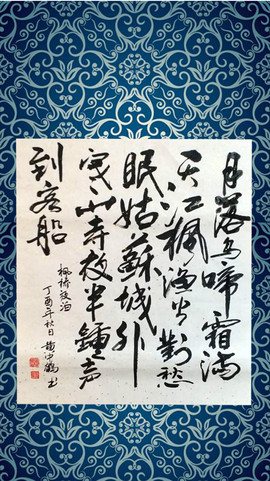 月落乌啼霜满
天江枫渔火对愁
眠姑苏城外
寒山寺夜半钟声
到客船
枫桥夜泊
丁酉年秋日
书